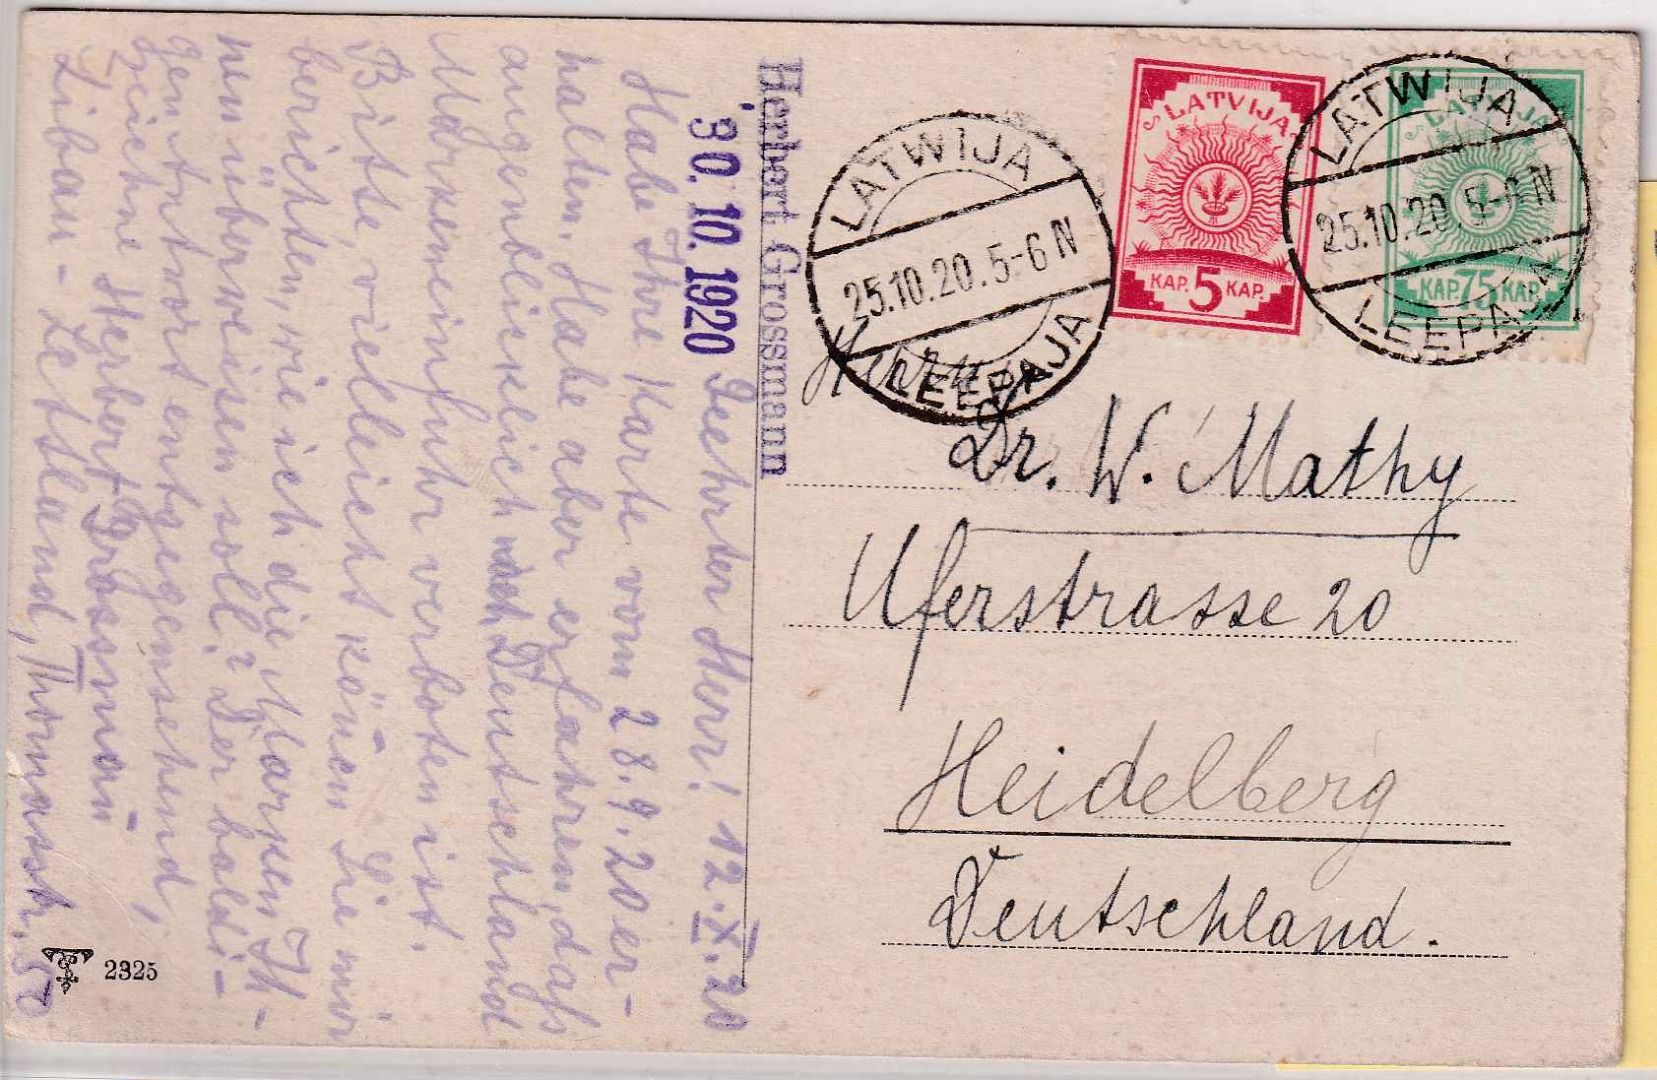 Herbert Grossmann
30.10.1920
Geehrter Herr! 12.X.20
Habe Ihre Karte vom 28.9.20 er-
halten. Habe aber erfahren, dass
augenblicklich nach Deutschland
Markeneinfuhr verboten ist.
Bitte, vielleicht könen Sie mir
berichten, wie ich die Marken Ih-
nen überweisen soll? Ihrer baldi-
gen Antwort entgegensehend,
zeichne Herbert Grossman
Libau - Lettland, Thomasstr. 50
2325
LATWIJA
25.10.20. 5-6 N
LEEPAJA
LATVIJA
KAP. 5 KAP.
LATWIJA
25.10.20. 5-6 N
LEEPAJA
LATVIJA
KAP. 75 KAP.
Herrn
Dr. W. Mathy
Uferstrasse 20
Heidelberg
Deutschland.